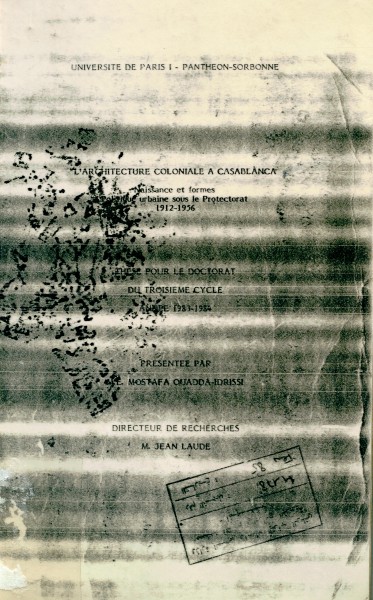 UNIVERSITE DE PARIS I - PANTHEON-SORBONNE
"L'ARCHITECTURE COLONIALE A CASABLANCA
Naissance et formes
urbaine sous le Protectorat
1912-1956
THESE POUR LE DOCTORAT
DU TROISIEME CYCLE
ANNEE 1983-1984
PRESENTEE PAR
MOSTAFA OUADDA-IDRISSI
DIRECTEUR DE RECHERCHES
M. JEAN LAUDE